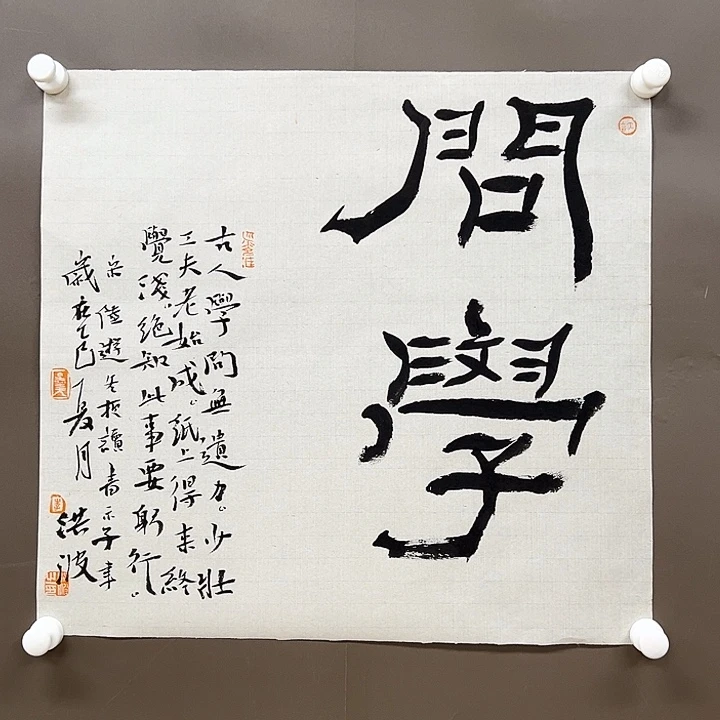 問學
古人學問無遺力。少壯
工夫老始成。紙上得來終
覺淺。絕知此事要躬行。
宋陸遊冬夜讀書示子聿
歲在乙巳夏月洪波